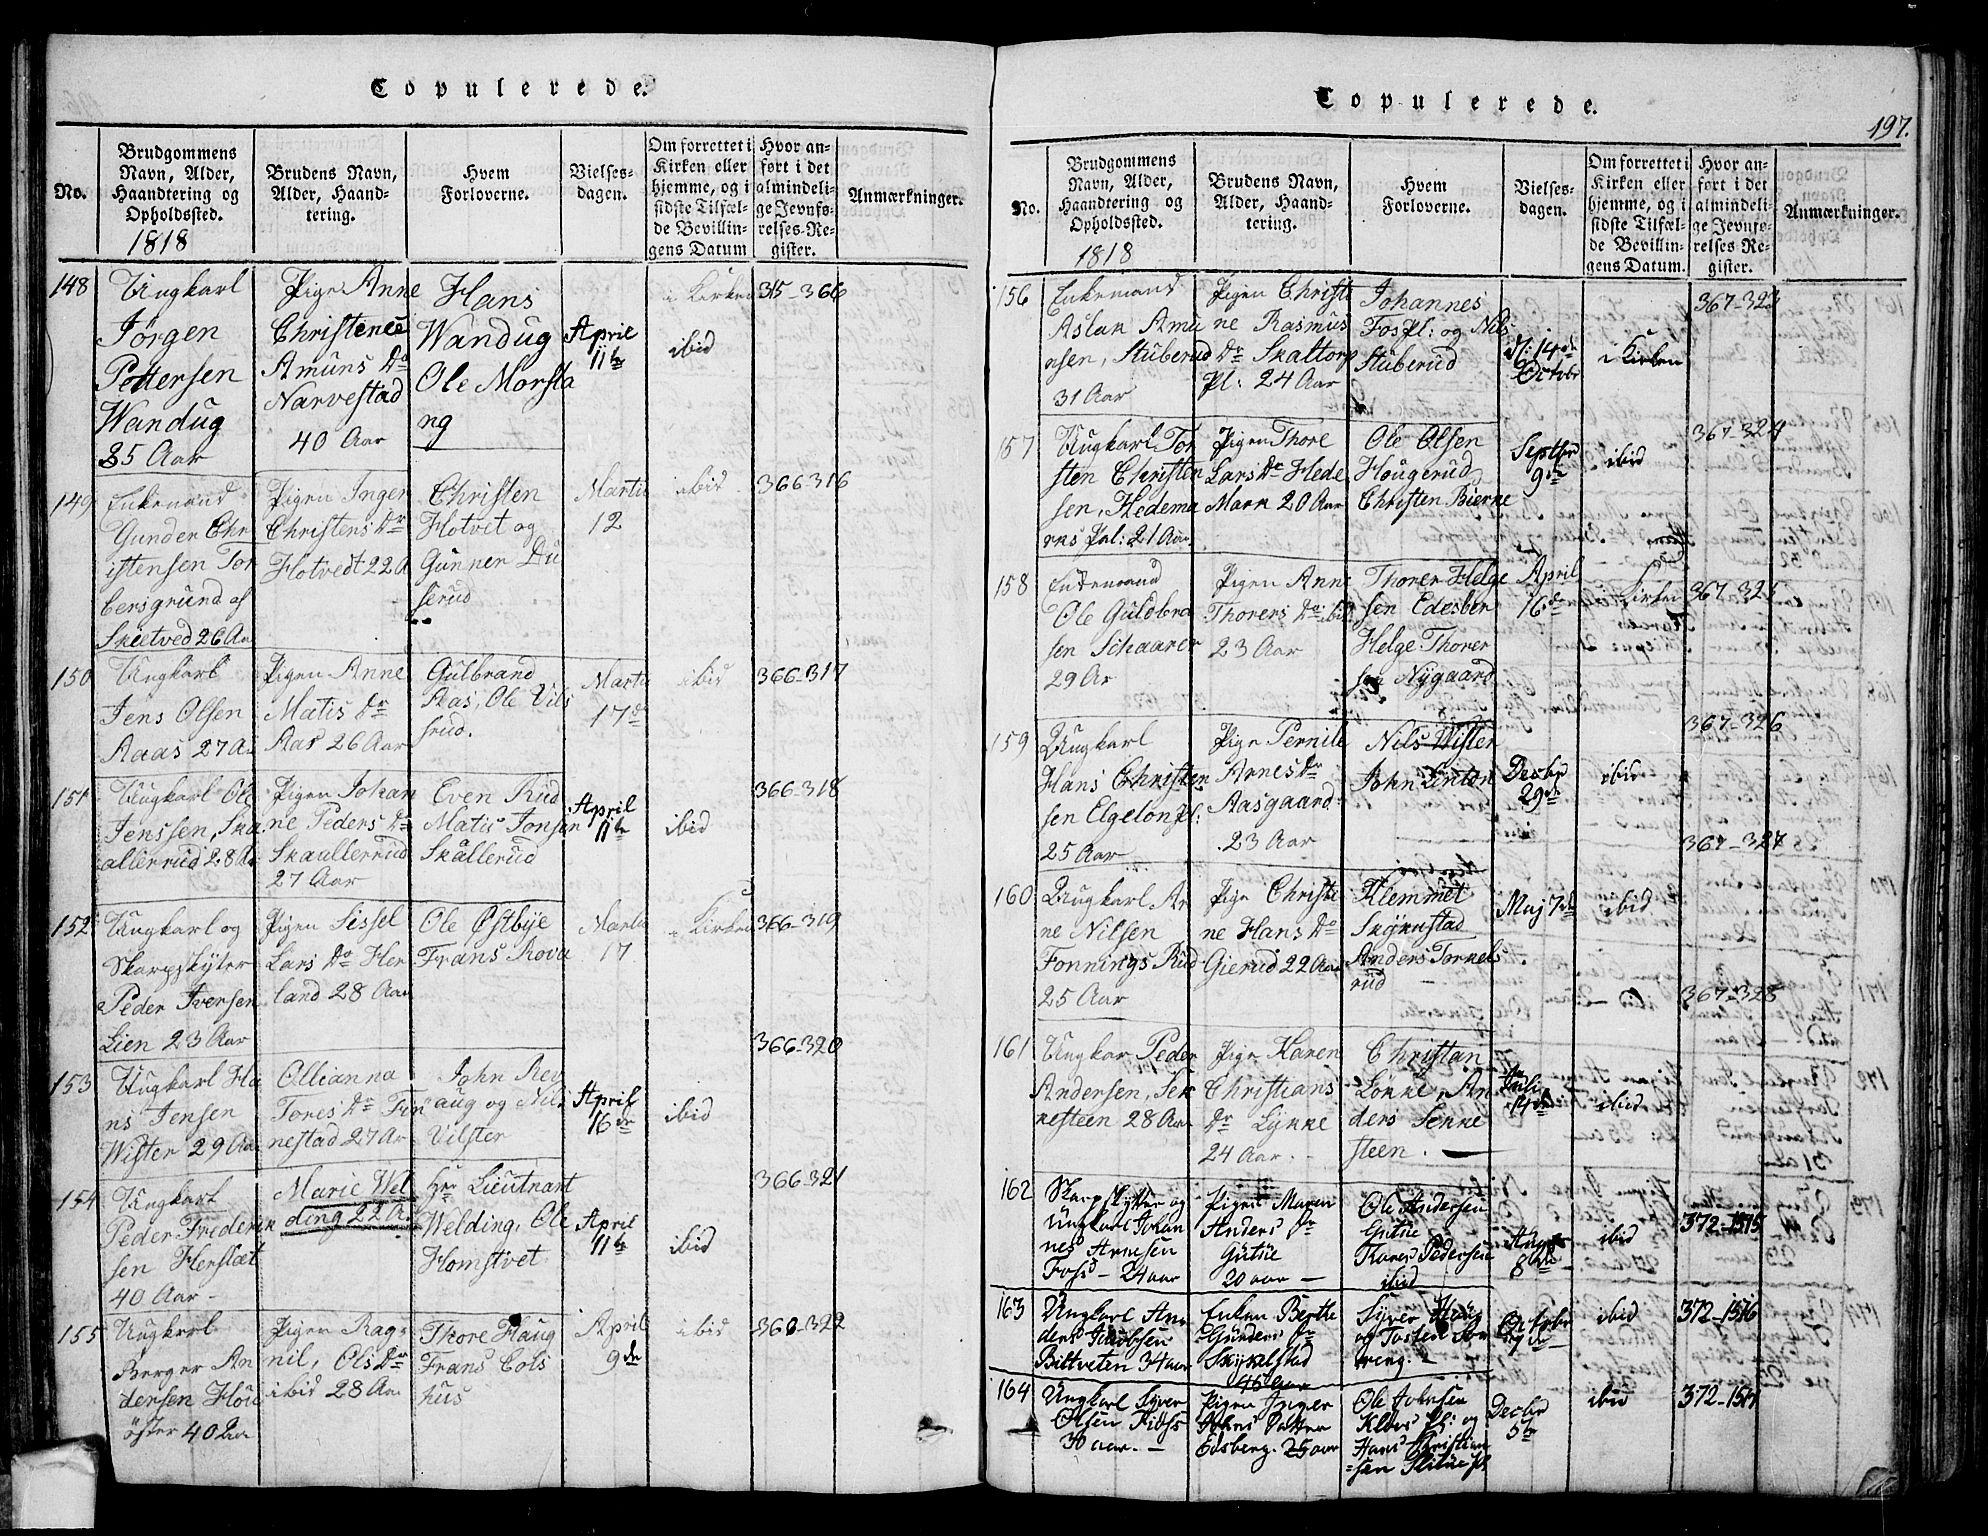 Copulerede.
No.
Brudgommens
Navn, Alder,
Haandtering og
Opholdssted.
1818
Brudens Navn,
Alder, Haand-
tering.
Hvem
Forloverne.
Vielses-
dagen.
Om forrettet i
Kirken eller
hjemme, og i
sidste Tilfæl-
de Bevillin-
gens Datum
Hvor an-
ført i det
almindeli-
ge Jevnfø-
relses-Re-
gister.
Anmærkninger.
148
Ungkarl
Jörgen
Pettersen
Wandug
35 Aar
Pigen Anne
Christenes
Amuns Dr
Narvestad
40 Aar
Hans
Wandug
Ole Morsta
ng
April
11te
i Kirken
ibid
315-366
149
Enkemand
Gunder Chr
istensen Tor
bersgrund af
Skietved 26 Aa
Pigen Inger
Christens Dr
Flotvedt 22 A
Christen
Flotvet og
Gunner Du
serud
Marti
12
ibid
366-316
150
Ungkarl
Jens Olsen
Aaas 27 A
Pigen Anne
Matis Dr
Aas 26 Aar
Gulbrand
Aas, Ole Vils
srud.
Marti
17d
ibid
366-317
151
Ungkarl Ole
Jenssen, Ska
allerrud 28 Aa
Pigen Johan
ne Peders Dr
Skaallerrud
27 Aar
Even Rud
Matis Jonsen
Skållerud
April
11te
ibid
366-318
152
Ungkarl og
Skarpskyter
Peder Iversen
Lien 23 Aar
Pigen Sissel
Lars Dr Her
land 28 Aar
Ole Østbye
Frans Rova
Marti
17
i Kirken
366-319
153
Ungkarl Ha
ns Jensen
Wister 29 Aar
Ollianna
Tores Dr Fin
nestad 27 Ar
John Rev
aug og Nils
Vilster
April
16de
ibid
366-320
154
Ungkarl
Peder Frederik
sen Herslæt
40 Aar
Marie Wel
ding 22 A.
Hr Lieutnant
Welding, Ole
Homstvet
April
11te
ibid
366-321
155
Ungkarl
Berger An
dersen Hou
öster 40 Aar
Pigen Rag
nil, Ols Dr
ibid 28 Aar
Thore Haug
Frans Cols
hus
April
9de
ibid
366-322
Copulerede.
197.
No.
Brudgommens
Navn, Alder,
Haandtering og
Opholdssted.
1818
Brudens Navn,
Alder, Haand-
tering.
Hvem
Forloverne.
Vielses-
dagen.
Om forrettet i
Kirken eller
hjemme, og i
sidste Tilfæl-
de Bevillin-
gens Datum.
Hvor an-
ført i det
almindeli-
ge Jevnfø-
relses Re-
gister.
Anmærkninger.
156
Enkemand
Aslak Amu
nsen, Stuberud
31 Aar
Pigen Christi
ne Rasmus
Dr Skaltorp
Pl: 24 Aar
Johannes
Fos Pl: og Nils
Stuberud
d: 14de
Octobr
i Kirken
367-323
157
Ungkarl Tor
sten Christen
sen, Hedema
rks Pal: 21 Aar
Pigen Thore
Lars Dr Hede
Mark 20 Aar
Ole Olsen
Hougerud
Christen Bierke
Septbr
9de
ibid
367-324
158
Enkemand
Ole Guldbra
sen Schaarer
29 Ar
Pigen Anne
Thorers Dr ibid
23 Aar
Thorer Helge
sen Edesber
Helge Thorer
sen Nygaard
April
16de
i Kirken
367-325
159
Ungkarl
Hans Christen
sen Elgeton Pl:
25 Aar
Pige Pernile
Arnes Dr
Aasgaard
23 Aar
Nils Wister
John Linton
Decbr
29de
ibid
367-326
160
Ungkarl Ar
ne Nilsen
Fonnings Rud
25 Aar
Pige Christi
ne Hans Dr
Gierud 22 Aar
Klemmet
Skÿkustad
Anders Tornels
rud
Maj 7de
ibid
367-327
161
Ungkar Peder
Andersen, Sen
nesteen 28 Aar
Pige Karen
Christians
Dr Lÿkke
24 Aar.
Christian
Lökke, An
ders Senne
steen.
Juli
14de
ibid
367-328
162
Skarpskytter og
Ungkarl Johan
nes Arnesen
Foss - 24 aar
Pigen Maren
Anders Dr
Gutue
20 aar -
Ole Andersen
Gutue
Pedersen
ibid
Aug
8de
ibid
372-1515
163
Ungkarl An
ders Jacobsen
Biltveten 34 aar
Enken Berthe
Gunders Dr
Skÿkelstad
46 aar
Syver Haug
og Tosten
Octobr
7de
ibid
372-1516
164
Ungkarl Syver
Olsen Foss
30 aar. -
Pigen Inger
Johns Datter
Edsberg. 25 aar
Ole Johnsen
Pl: og
Hans Christian
sen Slitue Pl
Decbr
5te
ibid
372-1517